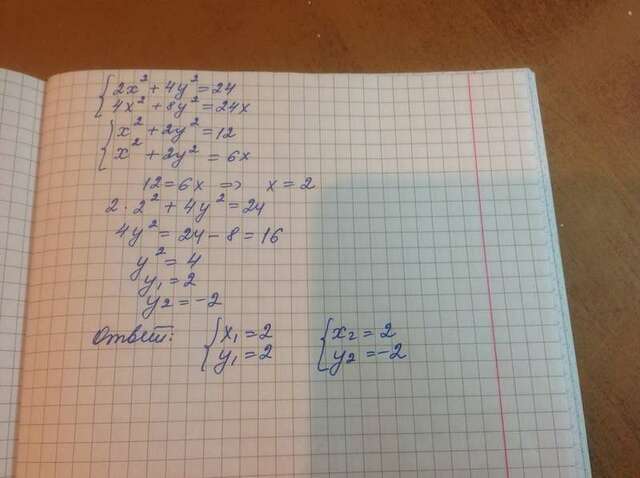 {2x² + 4y² = 24
{4x² + 8y² = 24x
{x² + 2y² = 12
{x² + 2y² = 6x
12 = 6x => x = 2
2 · 2² + 4y² = 24
4y² = 24 - 8 = 16
y² = 4
y₁ = 2
y₂ = -2
Ответ: {x₁ = 2 {x₂ = 2
{y₁ = 2 {y₂ = -2